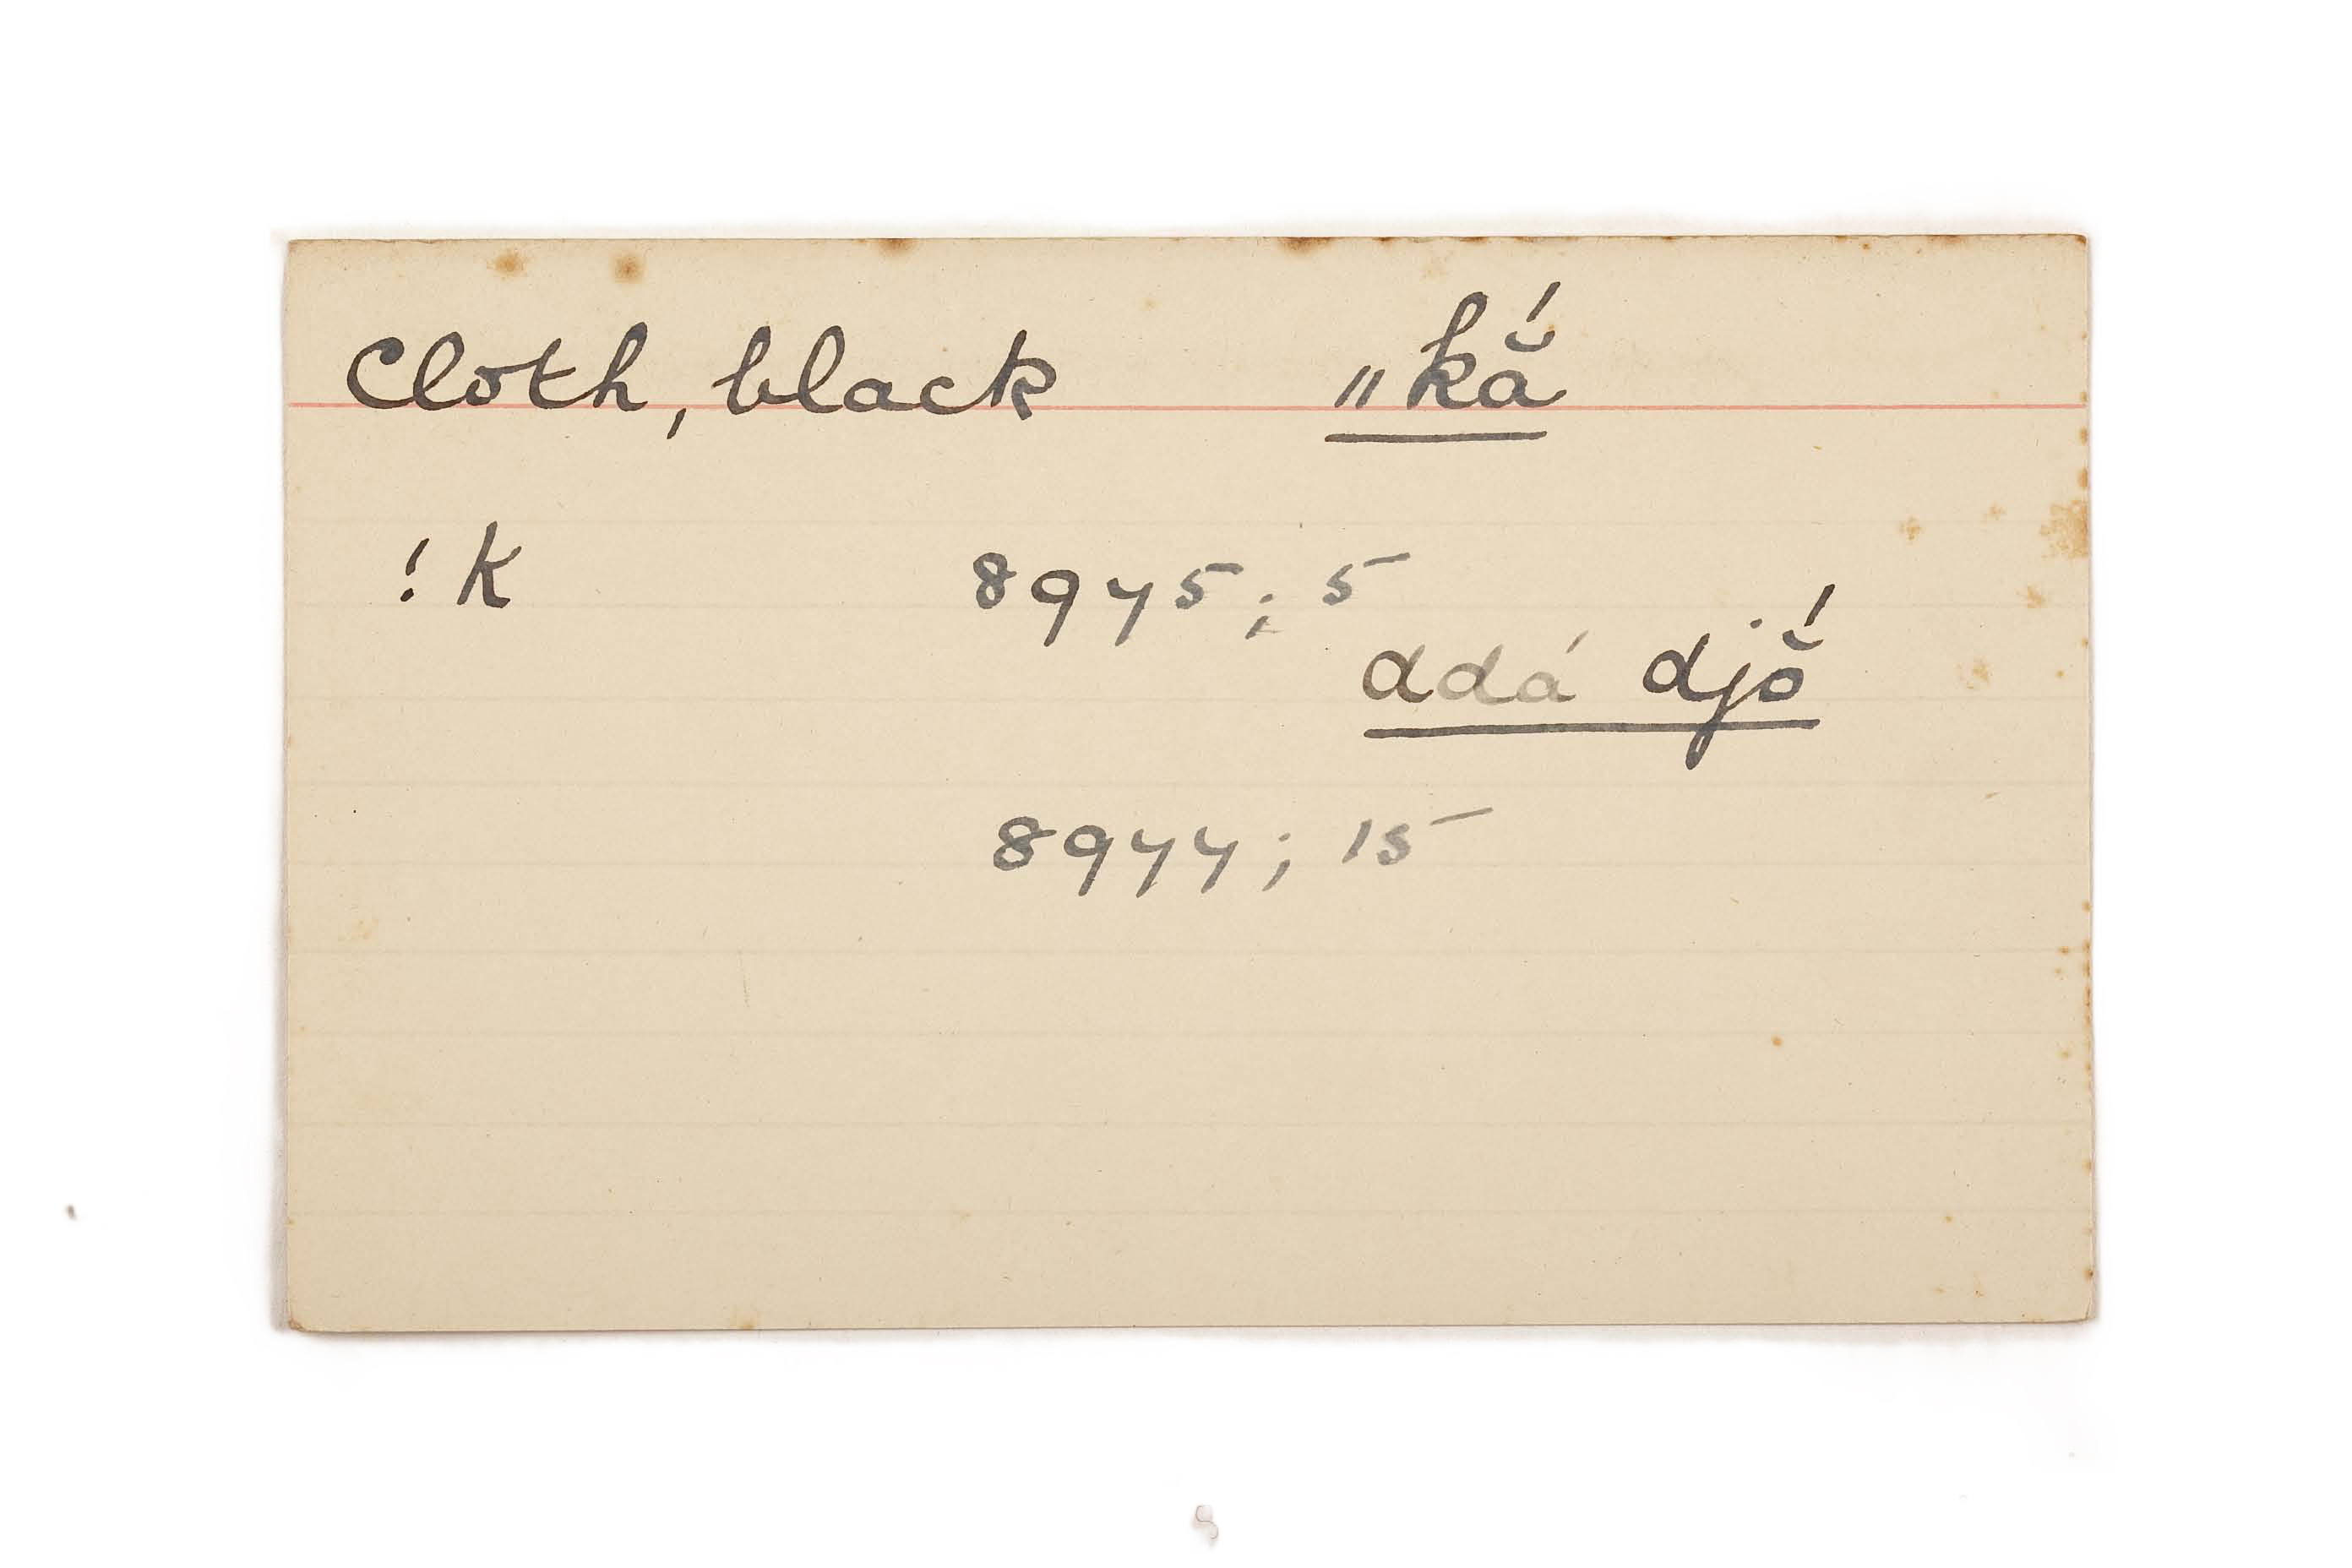 Cloth, black 〃kắ
!k 8975; 5
adá djŏ́
8977; 15